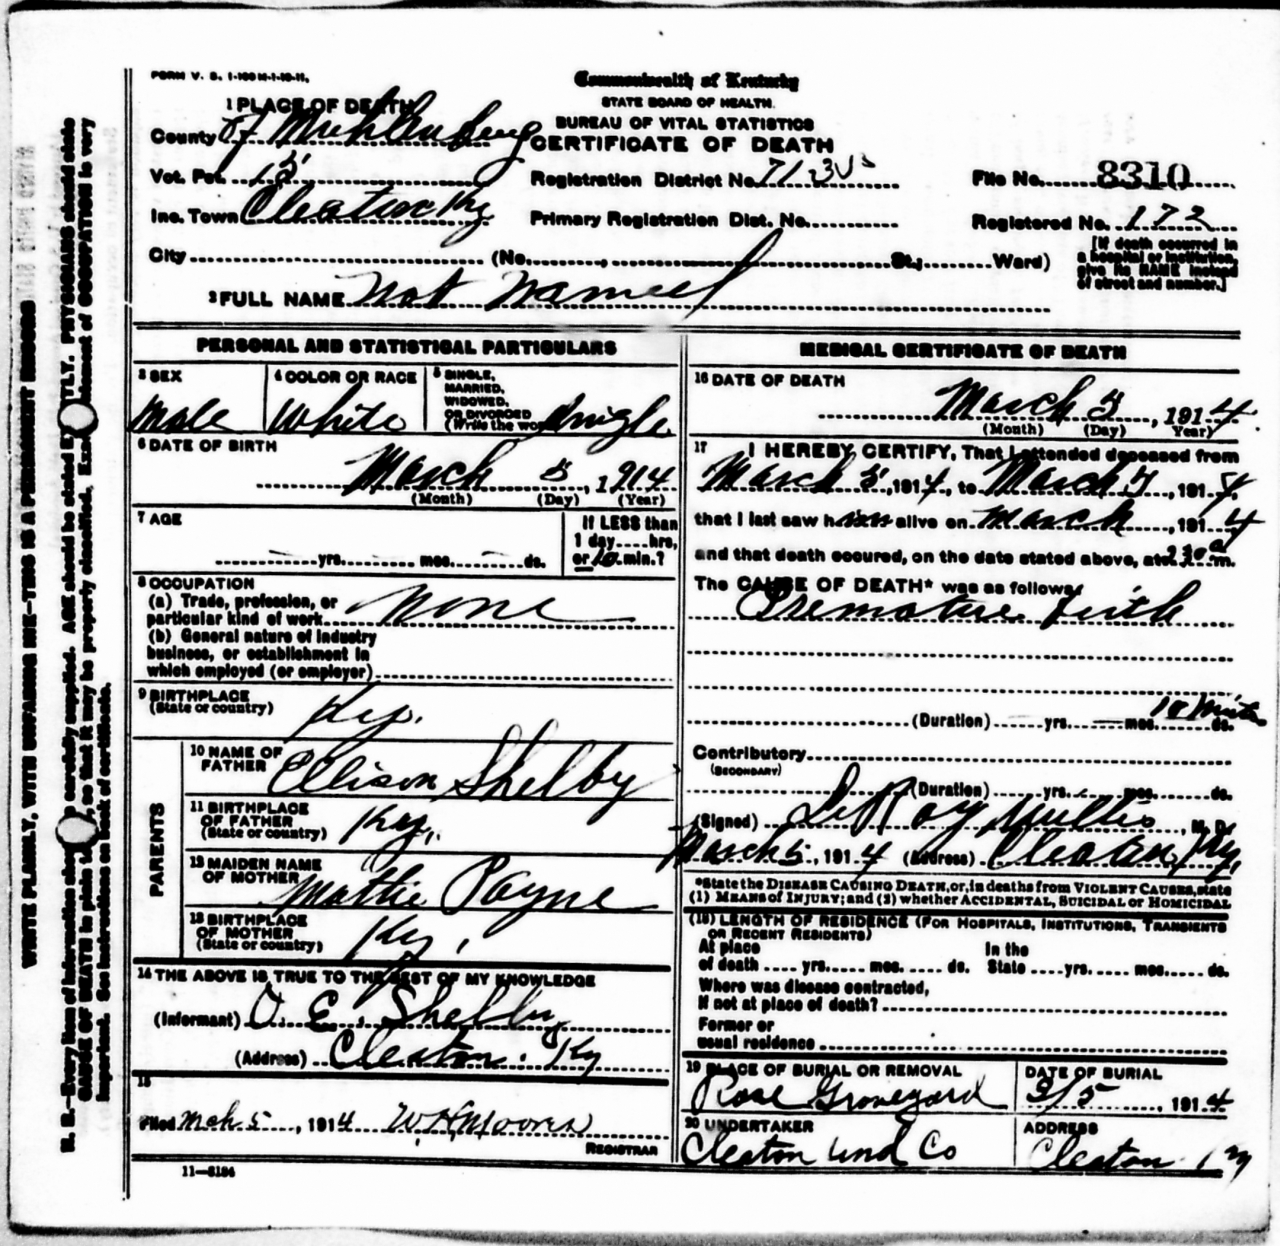 FORM V. S. 1-100 M-1-10-11.
Commonwealth of Kentucky
STATE BOARD OF HEALTH.
BUREAU OF VITAL STATISTICS
CERTIFICATE OF DEATH
1 PLACE OF DEATH
County of Muhlenberg
Vot. Pct. 15
Inc. Town Cleaton Ky
City (No. , St.; Ward)
Registration District No. 
Primary Registration Dist. No.
File No. 8310
Registered No. 172
[If death occurred in
a hospital or institution,
give its NAME instead
of street and number.]
2 FULL NAME Not Named
PERSONAL AND STATISTICAL PARTICULARS
3 SEX
Male
4 COLOR OR RACE
White
5 SINGLE,
MARRIED,
WIDOWED,
OR DIVORCED
(Write the word) Single
6 DATE OF BIRTH
March 5, 1914
(Month) (Day) (Year)
7 AGE
yrs. mos. ds.
If LESS than
1 day....hrs,
or 10 min.?
8 OCCUPATION
(a) Trade, profession, or
particular kind of work None
(b) General nature of industry
business, or establishment in
which employed (or employer)
9 BIRTHPLACE
(State or country) Ky.
PARENTS
10 NAME OF
FATHER Ellison Shelby
11 BIRTHPLACE
OF FATHER
(State or country) Ky.
12 MAIDEN NAME
OF MOTHER Mattie Payne
13 BIRTHPLACE
OF MOTHER
(State or country) Ky.
14 THE ABOVE IS TRUE TO THE BEST OF MY KNOWLEDGE
(Informant) O. E. Shelby
(Address) Cleaton. Ky
15
Filed Mch 5, 1914 W H Moores
REGISTRAR
11—5184
MEDICAL CERTIFICATE OF DEATH
16 DATE OF DEATH
March 5, 1914
(Month) (Day) Year)
17 I HEREBY CERTIFY, That I attended deceased from
March 5, 1914, to March 5, 1914,
that I last saw him alive on March, 1914
and that death occured, on the date stated above, at m.
The CAUSE OF DEATH* was as follows:
Premature birth
(Duration) yrs. mos. 10 Minutes ds.
Contributory
(SECONDARY)
(Duration) yrs. mos. ds.
(Signed) LeRoy , M. D.
March 5, 1914 (Address) Cleaton, Ky.
*State the DISEASE CAUSING DEATH, or, in deaths from VIOLENT CAUSES, state
(1) MEANS OF INJURY; and (2) whether ACCIDENTAL, SUICIDAL or HOMICIDAL
(18) LENGTH OF RESIDENCE (FOR HOSPITALS, INSTITUTIONS, TRANSIENTS
OR RECENT RESIDENTS)
At place In the
of death .... yrs. .... mos. .... ds. State .... yrs. .... mos. .... ds.
Where was disease contracted,
if not at place of death?
Former or
usual residence
19 PLACE OF BURIAL OR REMOVAL
Rose Graveyard
DATE OF BURIAL
3/5, 1914
20 UNDERTAKER
Cleaton Und Co
ADDRESS
Cleaton Ky
WRITE PLAINLY, WITH UNFADING INK—THIS IS A PERMANENT RECORD
N. B.—Every item of information should be carefully supplied. AGE should be stated EXACTLY. PHYSICIANS should state
CAUSE OF DEATH in plain terms, so that it may be properly classified. Exact statement of OCCUPATION is very
important. See instructions on back of certificate.